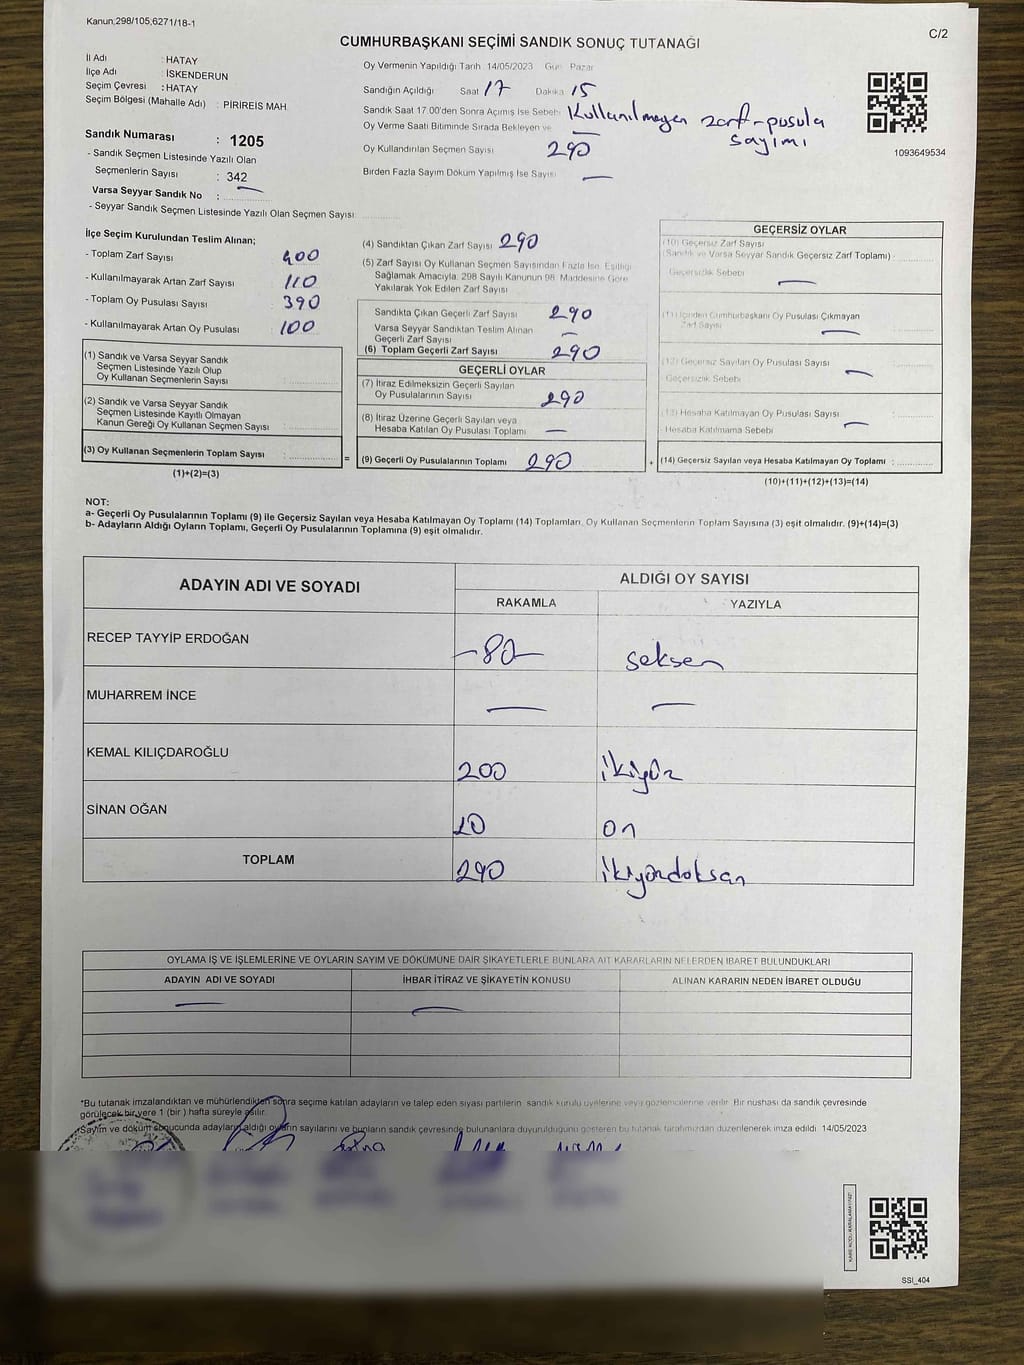 Kanun,298/105,6271/18-1
C/2
CUMHURBAŞKANI SEÇİMİ SANDIK SONUÇ TUTANAĞI
İl Adı : HATAY
İlçe Adı : İSKENDERUN
Seçim Çevresi : HATAY
Seçim Bölgesi (Mahalle Adı) : PİRİREİS MAH.
Sandık Numarası : 1205
- Sandık Seçmen Listesinde Yazılı Olan
Seçmenlerin Sayısı : 342
Varsa Seyyar Sandık No : —
- Seyyar Sandık Seçmen Listesinde Yazılı Olan Seçmen Sayısı
Oy Vermenin Yapıldığı Tarih :14/05/2023 Gün : Pazar
Sandığın Açıldığı Saat 17 Dakika 15
Sandık Saat 17.00'den Sonra Açımış İse Sebebi Kullanılmayan zarf-pusula
sayımı
Oy Verme Saati Bitiminde Sırada Bekleyen ve —
Oy Kullandırılan Seçmen Sayısı 290
Birden Fazla Sayım Döküm Yapılmış İse Sayısı —
1093649534
İlçe Seçim Kurulundan Teslim Alınan;
- Toplam Zarf Sayısı 400
- Kullanılmayarak Artan Zarf Sayısı 110
- Toplam Oy Pusulası Sayısı 390
- Kullanılmayarak Artan Oy Pusulası 100
(1) Sandık ve Varsa Seyyar Sandık
Seçmen Listesinde Yazılı Olup
Oy Kullanan Seçmenlerin Sayısı :
(2) Sandık ve Varsa Seyyar Sandık
Seçmen Listesinde Kayıtlı Olmayan
Kanun Gereği Oy Kullanan Seçmen Sayısı :
(3) Oy Kullanan Seçmenlerin Toplam Sayısı : =
(1)+(2)=(3)
(4) Sandıktan Çıkan Zarf Sayısı 290
(5) Zarf Sayısı Oy Kullanan Seçmen Sayısından Fazla İse, Eşitliği
Sağlamak Amacıyla, 298 Sayılı Kanunun 98. Maddesine Göre
Yakılarak Yok Edilen Zarf Sayısı
Sandıkta Çıkan Geçerli Zarf Sayısı 290
Varsa Seyyar Sandıktan Teslim Alınan
Geçerli Zarf Sayısı —
(6) Toplam Geçerli Zarf Sayısı 290
GEÇERLİ OYLAR
(7) İtiraz Edilmeksizin Geçerli Sayılan
Oy Pusulalarının Sayısı 290
(8) İtiraz Üzerine Geçerli Sayılan veya
Hesaba Katılan Oy Pusulası Toplamı —
(9) Geçerli Oy Pusulalarının Toplamı 290 +
GEÇERSİZ OYLAR
(10) Geçersiz Zarf Sayısı
(Sandık ve Varsa Seyyar Sandık Geçersiz Zarf Toplamı) :
Geçersizlik Sebebi —
(11) İçinden Cumhurbaşkanı Oy Pusulası Çıkmayan
Zarf Sayısı —
(12) Geçersiz Sayılan Oy Pusulası Sayısı
Geçersizlik Sebebi —
(13) Hesaba Katılmayan Oy Pusulası Sayısı
Hesaba Katılmama Sebebi —
(14) Geçersiz Sayılan veya Hesaba Katılmayan Oy Toplamı :
(10)+(11)+(12)+(13)=(14)
NOT:
a- Geçerli Oy Pusulalarının Toplamı (9) ile Geçersiz Sayılan veya Hesaba Katılmayan Oy Toplamı (14) Toplamları, Oy Kullanan Seçmenlerin Toplam Sayısına (3) eşit olmalıdır. (9)+(14)=(3)
b- Adayların Aldığı Oyların Toplamı, Geçerli Oy Pusulalarının Toplamına (9) eşit olmalıdır.
ADAYIN ADI VE SOYADI ALDIĞI OY SAYISI
RAKAMLA YAZIYLA
RECEP TAYYİP ERDOĞAN -80- seksen
MUHARREM İNCE — —
KEMAL KILIÇDAROĞLU 200 ikiyüz
SİNAN OĞAN 10 on
TOPLAM 290 ikiyüzdoksan
OYLAMA İŞ VE İŞLEMLERİNE VE OYLARIN SAYIM VE DÖKÜMÜNE DAİR ŞİKAYETLERLE BUNLARA AİT KARARLARIN NELERDEN İBARET BULUNDUKLARI
ADAYIN ADI VE SOYADI İHBAR İTİRAZ VE ŞİKAYETİN KONUSU ALINAN KARARIN NEDEN İBARET OLDUĞU
— —
*Bu tutanak imzalandıktan ve mühürlendikten sonra seçime katılan adayların ve talep eden siyasi partilerin sandık kurulu üyelerine veya gözlemcilerine verilir. Bir nüshası da sandık çevresinde
görülecek bir yere 1 (bir ) hafta süreyle asılır.
*Sayım ve döküm sonucunda adayların aldığı oyların sayılarını ve bunların sandık çevresinde bulunanlara duyurulduğunu gösteren bu tutanak tarafımızdan düzenlenerek imza edildi. 14/05/2023
SSİ_404